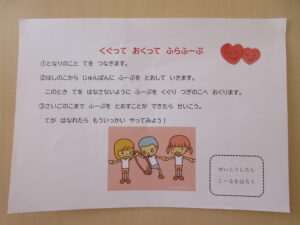 くぐって おくって ふらふーぷ
①となりのこと てを つなぎます。
②はしのこから じゅんばんに ふーぷを とおして いきます。
このとき てを はなさないように ふーぷを くぐり つぎのこへ おくります。
③さいごのこまで ふーぷを とおすことが できたら せいこう。
てが はなれたら もういっかい やってみよう！
せいこうしたら
しーるをはろう